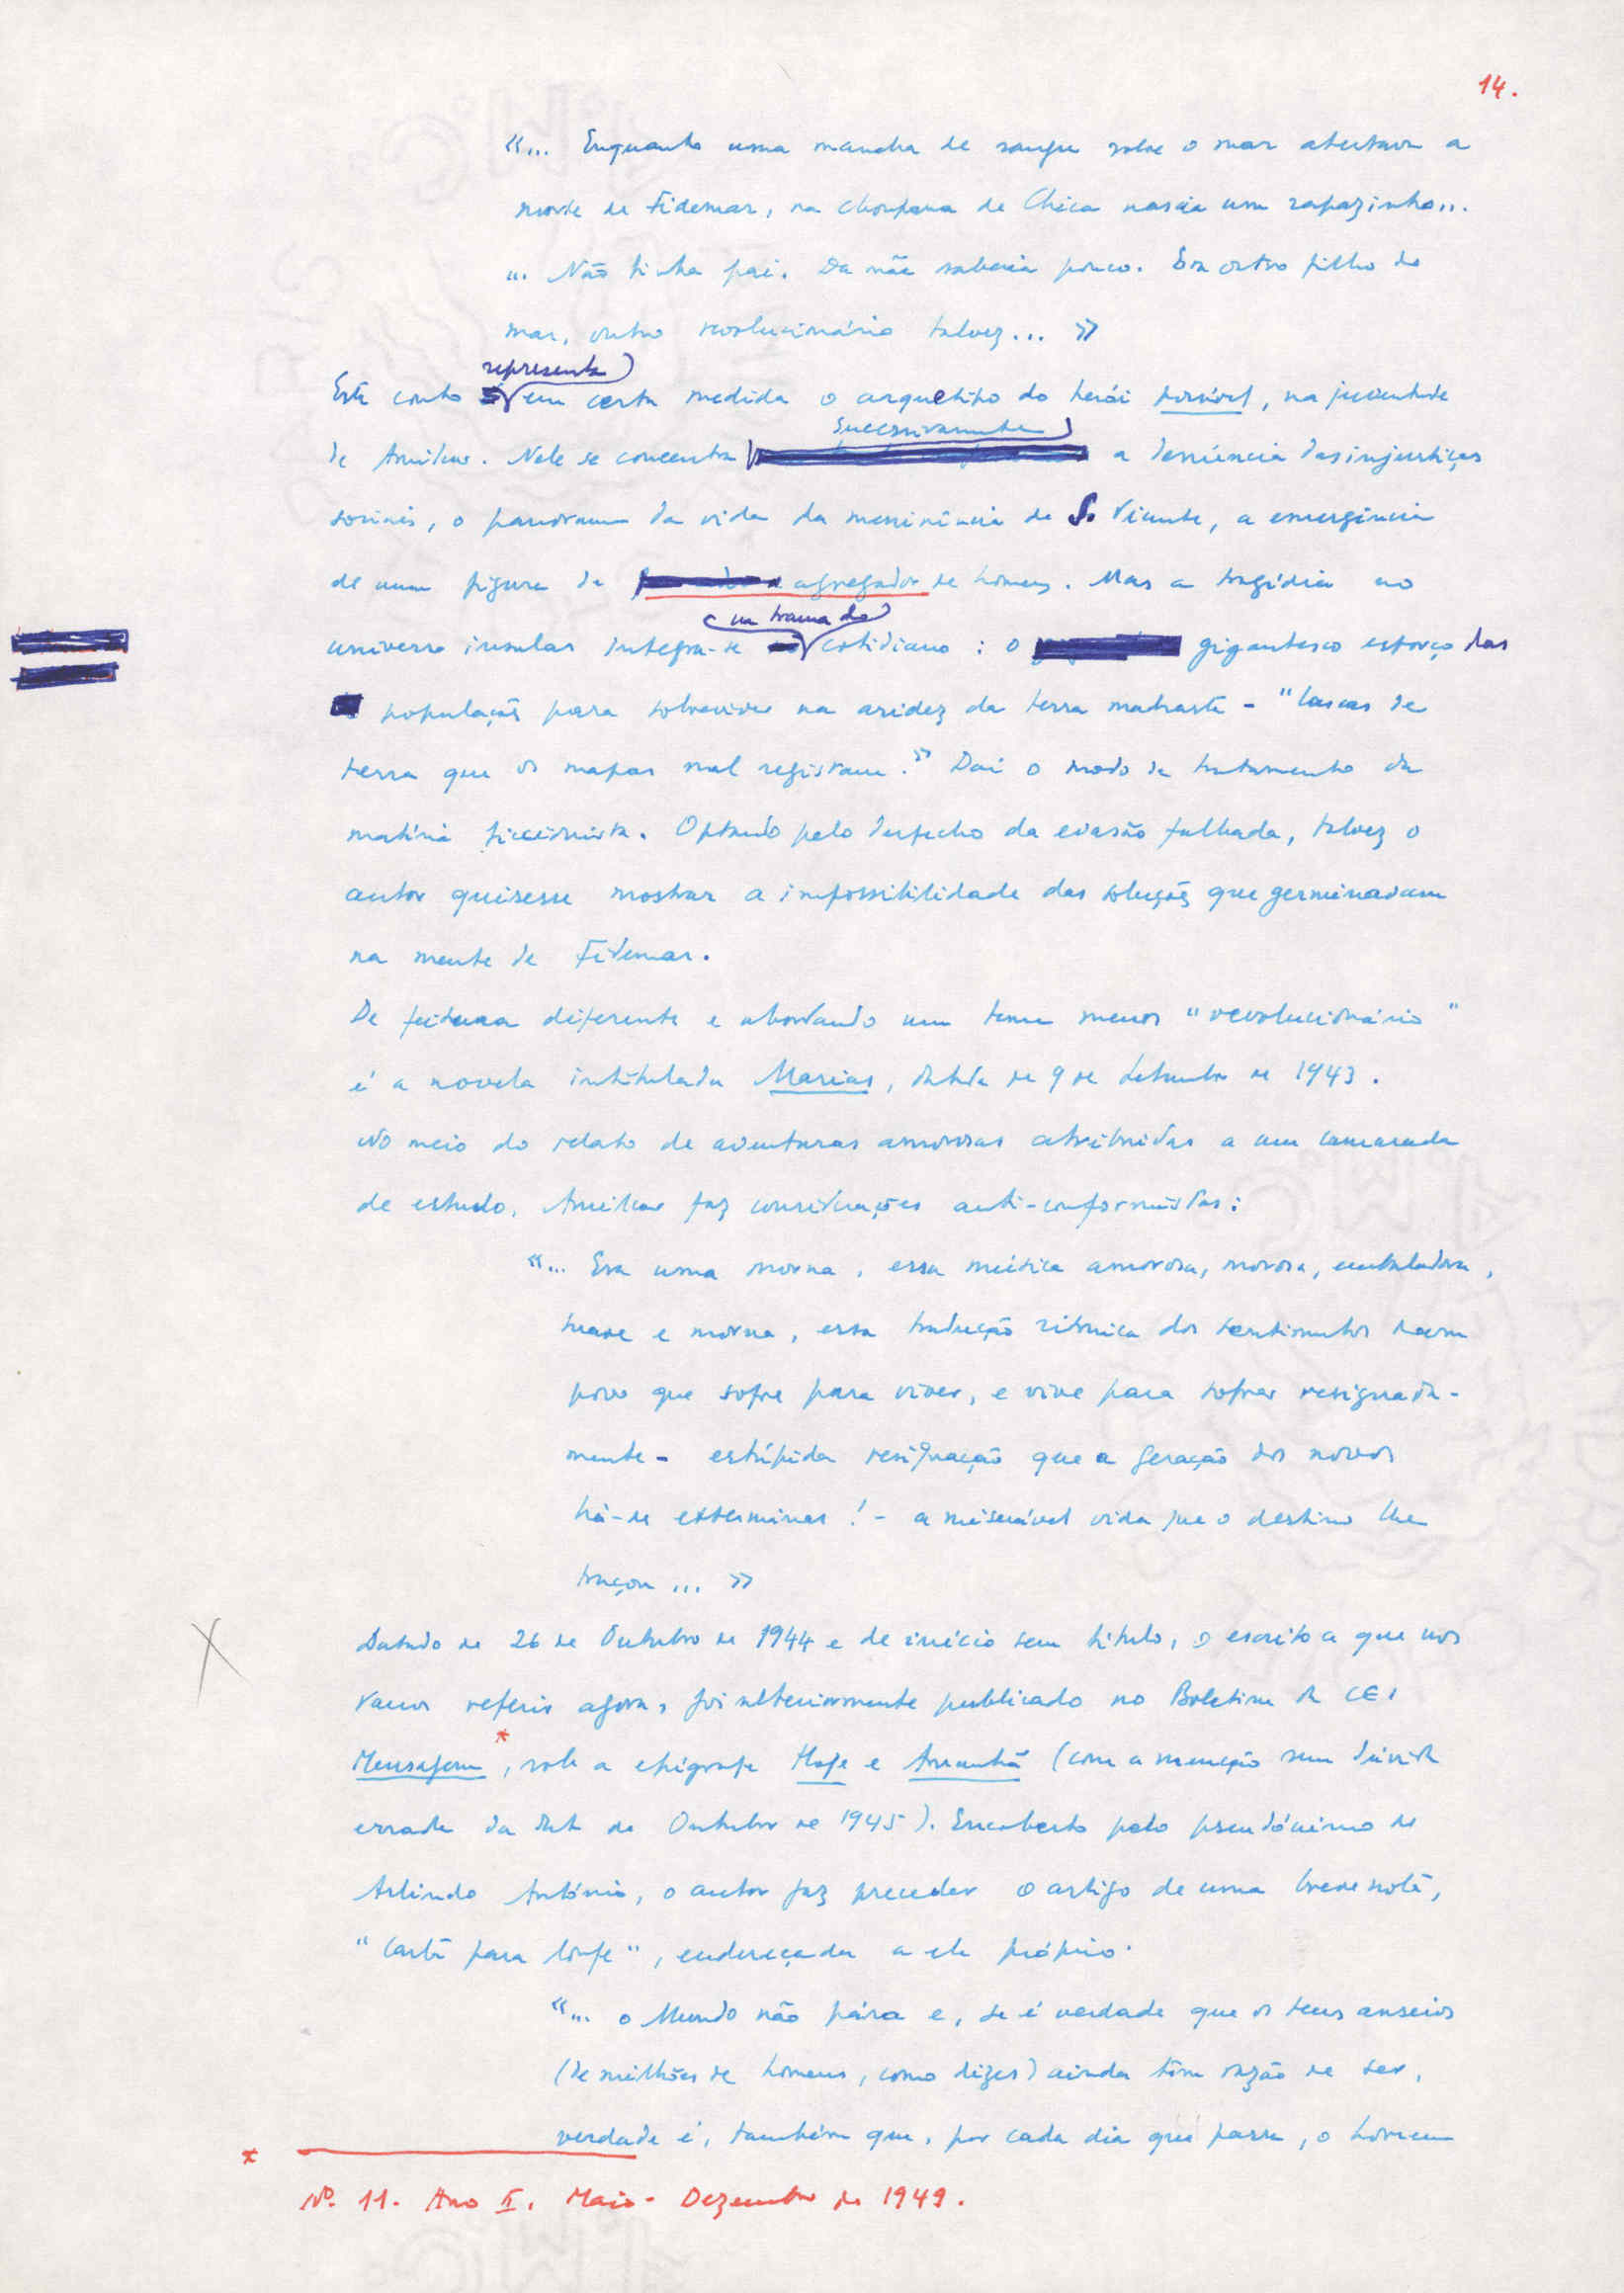 14.
«... Enquanto uma mancha de sangue sobre o mar atestava a
morte de Fidemar, na choupana de Chica nascia um rapazinho...
... Não tinha pai. Da mãe saberia pouco. Era outro filho do
mar, outro revolucionário talvez... »
representa
Este conto em certa medida o arquétipo do herói possível, na juventude
successivamente
de Amílcar. Nele se concentra a denúncia das injustiças
sociais, o panorama da vida da mesma de S. Vicente, a emergência
de uma figura de agregador de homens. Mas a tragédia no
na trama do
universo insular integra-se cotidiano : o gigantesco esforço das
populações para sobreviver na aridez da terra madrasta - "lascas de
terra que os mapas mal registam." Daí o modo de tratamento da
matéria ficcionista. Optando pelo desfecho da evasão falhada, talvez o
autor quisesse mostrar a impossibilidade das soluções que germinavam
na mente de Fidemar.
De feitura diferente e abordando um tema menos "revolucionário"
é a novela intitulada Marias, datada de 9 de Setembro de 1943.
No meio do relato de aventuras amorosas atribuidas a um camarada
de estudo, Amílcar faz considerações anti-conformistas:
«... Era uma morna, essa música amorosa, morosa, embaladora,
suave e morna, essa tradução rítmica dos sentimentos dum
povo que sofre para viver, e vive para sofrer resignada-
mente - estúpida resignação que a geração dos novos
há-de exterminar ! - a miserável vida que o destino lhe
traçou ... »
Datado de 26 de Outubro de 1944 e de início sem título, o escrito a que nos
vamos referir agora, foi ulteriormente publicado no Boletim da CEI
Mensagem*, sob a epígrafe Hoje e Amanhã (com a menção sem dúvida
errada da data de Outubro de 1945). Encoberto pelo pseudónimo de
Arlindo António, o autor faz preceder o artigo de uma breve nota,
"Carta para longe", endereçada a ele próprio.
«... o Mundo não pára e, se é verdade que os teus anseios
(de milhões de homens, como dizes) ainda têm razão de ser,
verdade é, também que, por cada dia que passa, o homem
*
Nº. 11. Ano II. Maio - Dezembro de 1949.